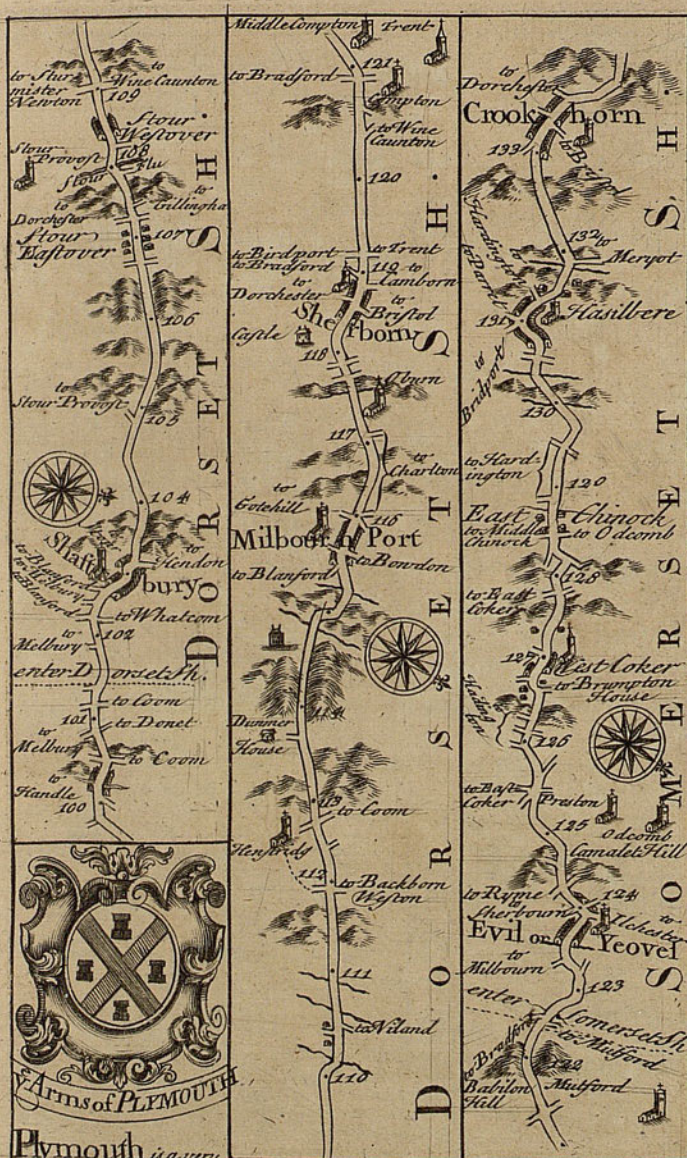 to Stur
mister
Newton
to
Wine Caunton
109
Stour
Westover
Stour
Provost
108
Stour
flu
to
Dorchester
to
Gillingha
Stour
Eastover
107
106
to
Stour Provost
105
104
Shaft
bury
to
Hendon
to Blanford
to Melbury
to Blanford
to Whatcom
to
Melbury
102
enter Dorset Sh.
to Coom
101
to Donet
to
Melbury
to Coom
to
Handle
100
DORSET SH
ye Arms of PLYMOUTH
Plymouth is a very
Middle Compton
Trent
121
to Bradford
Compton
to Wine
Caunton
120
to Birdport
to Trent
to Bradford
119
to
Camborn
to
Dorchester
to
Bristol
Sherborn
Castle
118
Oburn
117
to
Charlton
to
Gotehill
116
Milbourn Port
to Bowdon
to Blanford
114
Dunmer
House
113
to Coom
Henstridg
112
to Backborn
Weston
111
to Niland
110
DORSET SH.
to
Dorchester
Crookhorn
133
to Bristol
to
Hardington
132
to
Meryot
to Parrot
131
Hasilbere
to
Bridport
130
to Hard-
ington
120
East Chinock
to Middle
Chinock
to Odcomb
128
to East
Coker
127
West Coker
to Brumpton
House
Harding
ton
126
to East
Coker
Preston
Odcomb
125
Camalet Hill
to Ryme
124
to
Sherbourn
to
Ilchester
Evil or Yeovel
to
Milbourn
123
enter Somerset Sh
to Bradford
to Mutford
122
Babilon
Hill
Mutford
SOMERSET SH.